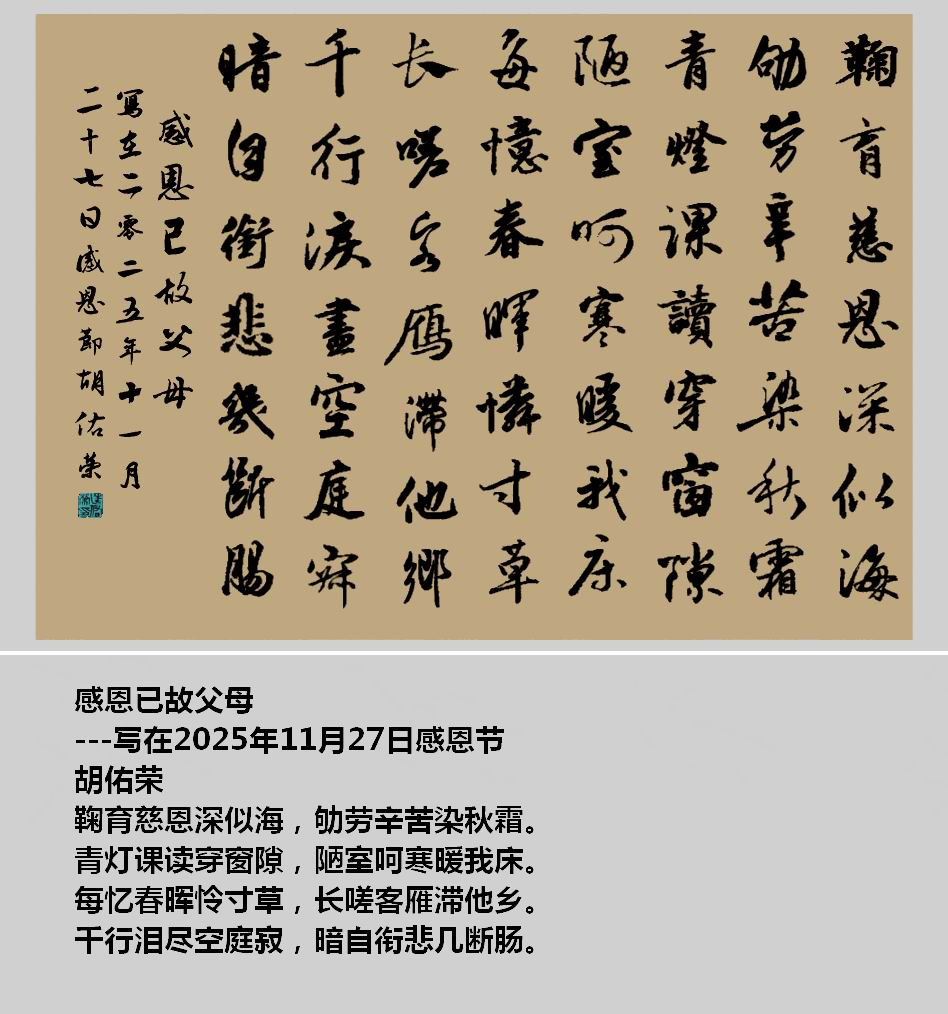 鞠育慈恩深似海
劬劳辛苦染秋霜
青燈課讀穿窗隙
陋室呵寒暖我床
每憶春暉憐寸草
长嗟客雁滞他鄉
千行淚盡空庭寂
暗自銜悲幾斷腸
感恩已故父母
寫在二零二五年十一月
二十七日感恩節胡佑荣
感恩已故父母
---写在2025年11月27日感恩节
胡佑荣
鞠育慈恩深似海，劬劳辛苦染秋霜。
青灯课读穿窗隙，陋室呵寒暖我床。
每忆春晖怜寸草，长嗟客雁滞他乡。
千行泪尽空庭寂，暗自衔悲几断肠。